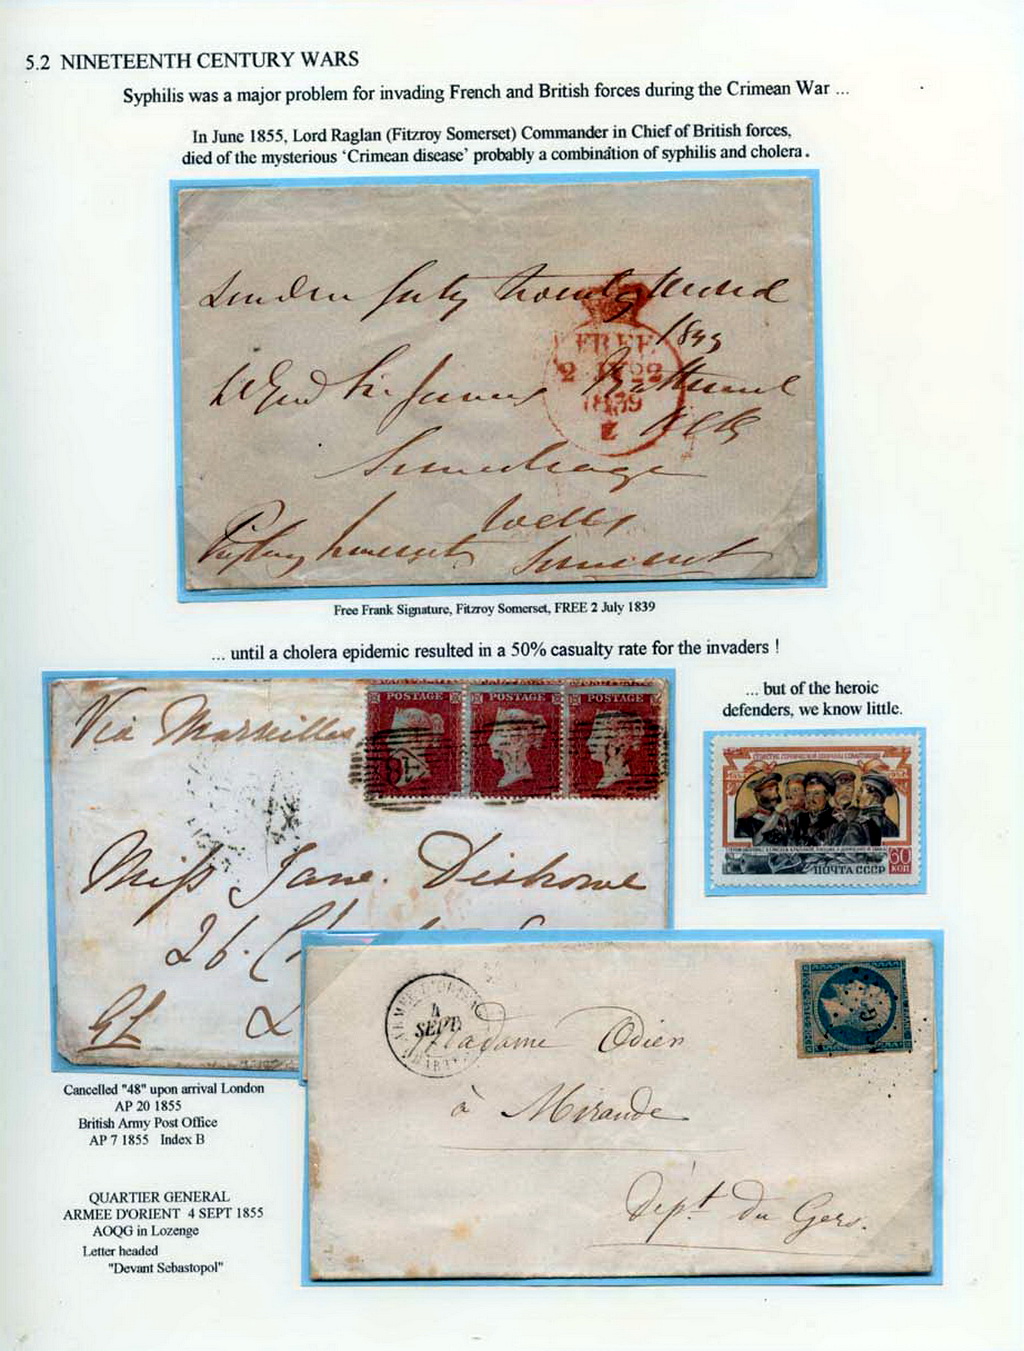 5.2 NINETEENTH CENTURY WARS
Syphilis was a major problem for invading French and British forces during the Crimean War ...
In June 1855, Lord Raglan (Fitzroy Somerset) Commander in Chief of British forces,
died of the mysterious 'Crimean disease' probably a combination of syphilis and cholera.
London July twenty
FREE
22
1839
Wells
Somerset
Free Frank Signature, Fitzroy Somerset, FREE 2 July 1839
... until a cholera epidemic resulted in a 50% casualty rate for the invaders !
... but of the heroic
defenders, we know little.
Via Marseilles
POSTAGE POSTAGE POSTAGE
48
60
КОП
ПОЧТА СССР
Miss Jane
26.
ARMEE D'ORIENT
4
SEPT
Madame Odier
à Mirande
Dépt du Gers.
Cancelled "48" upon arrival London
AP 20 1855
British Army Post Office
AP 7 1855 Index B
QUARTIER GENERAL
ARMEE D'ORIENT 4 SEPT 1855
AOQG in Lozenge
Letter headed
"Devant Sebastopol"